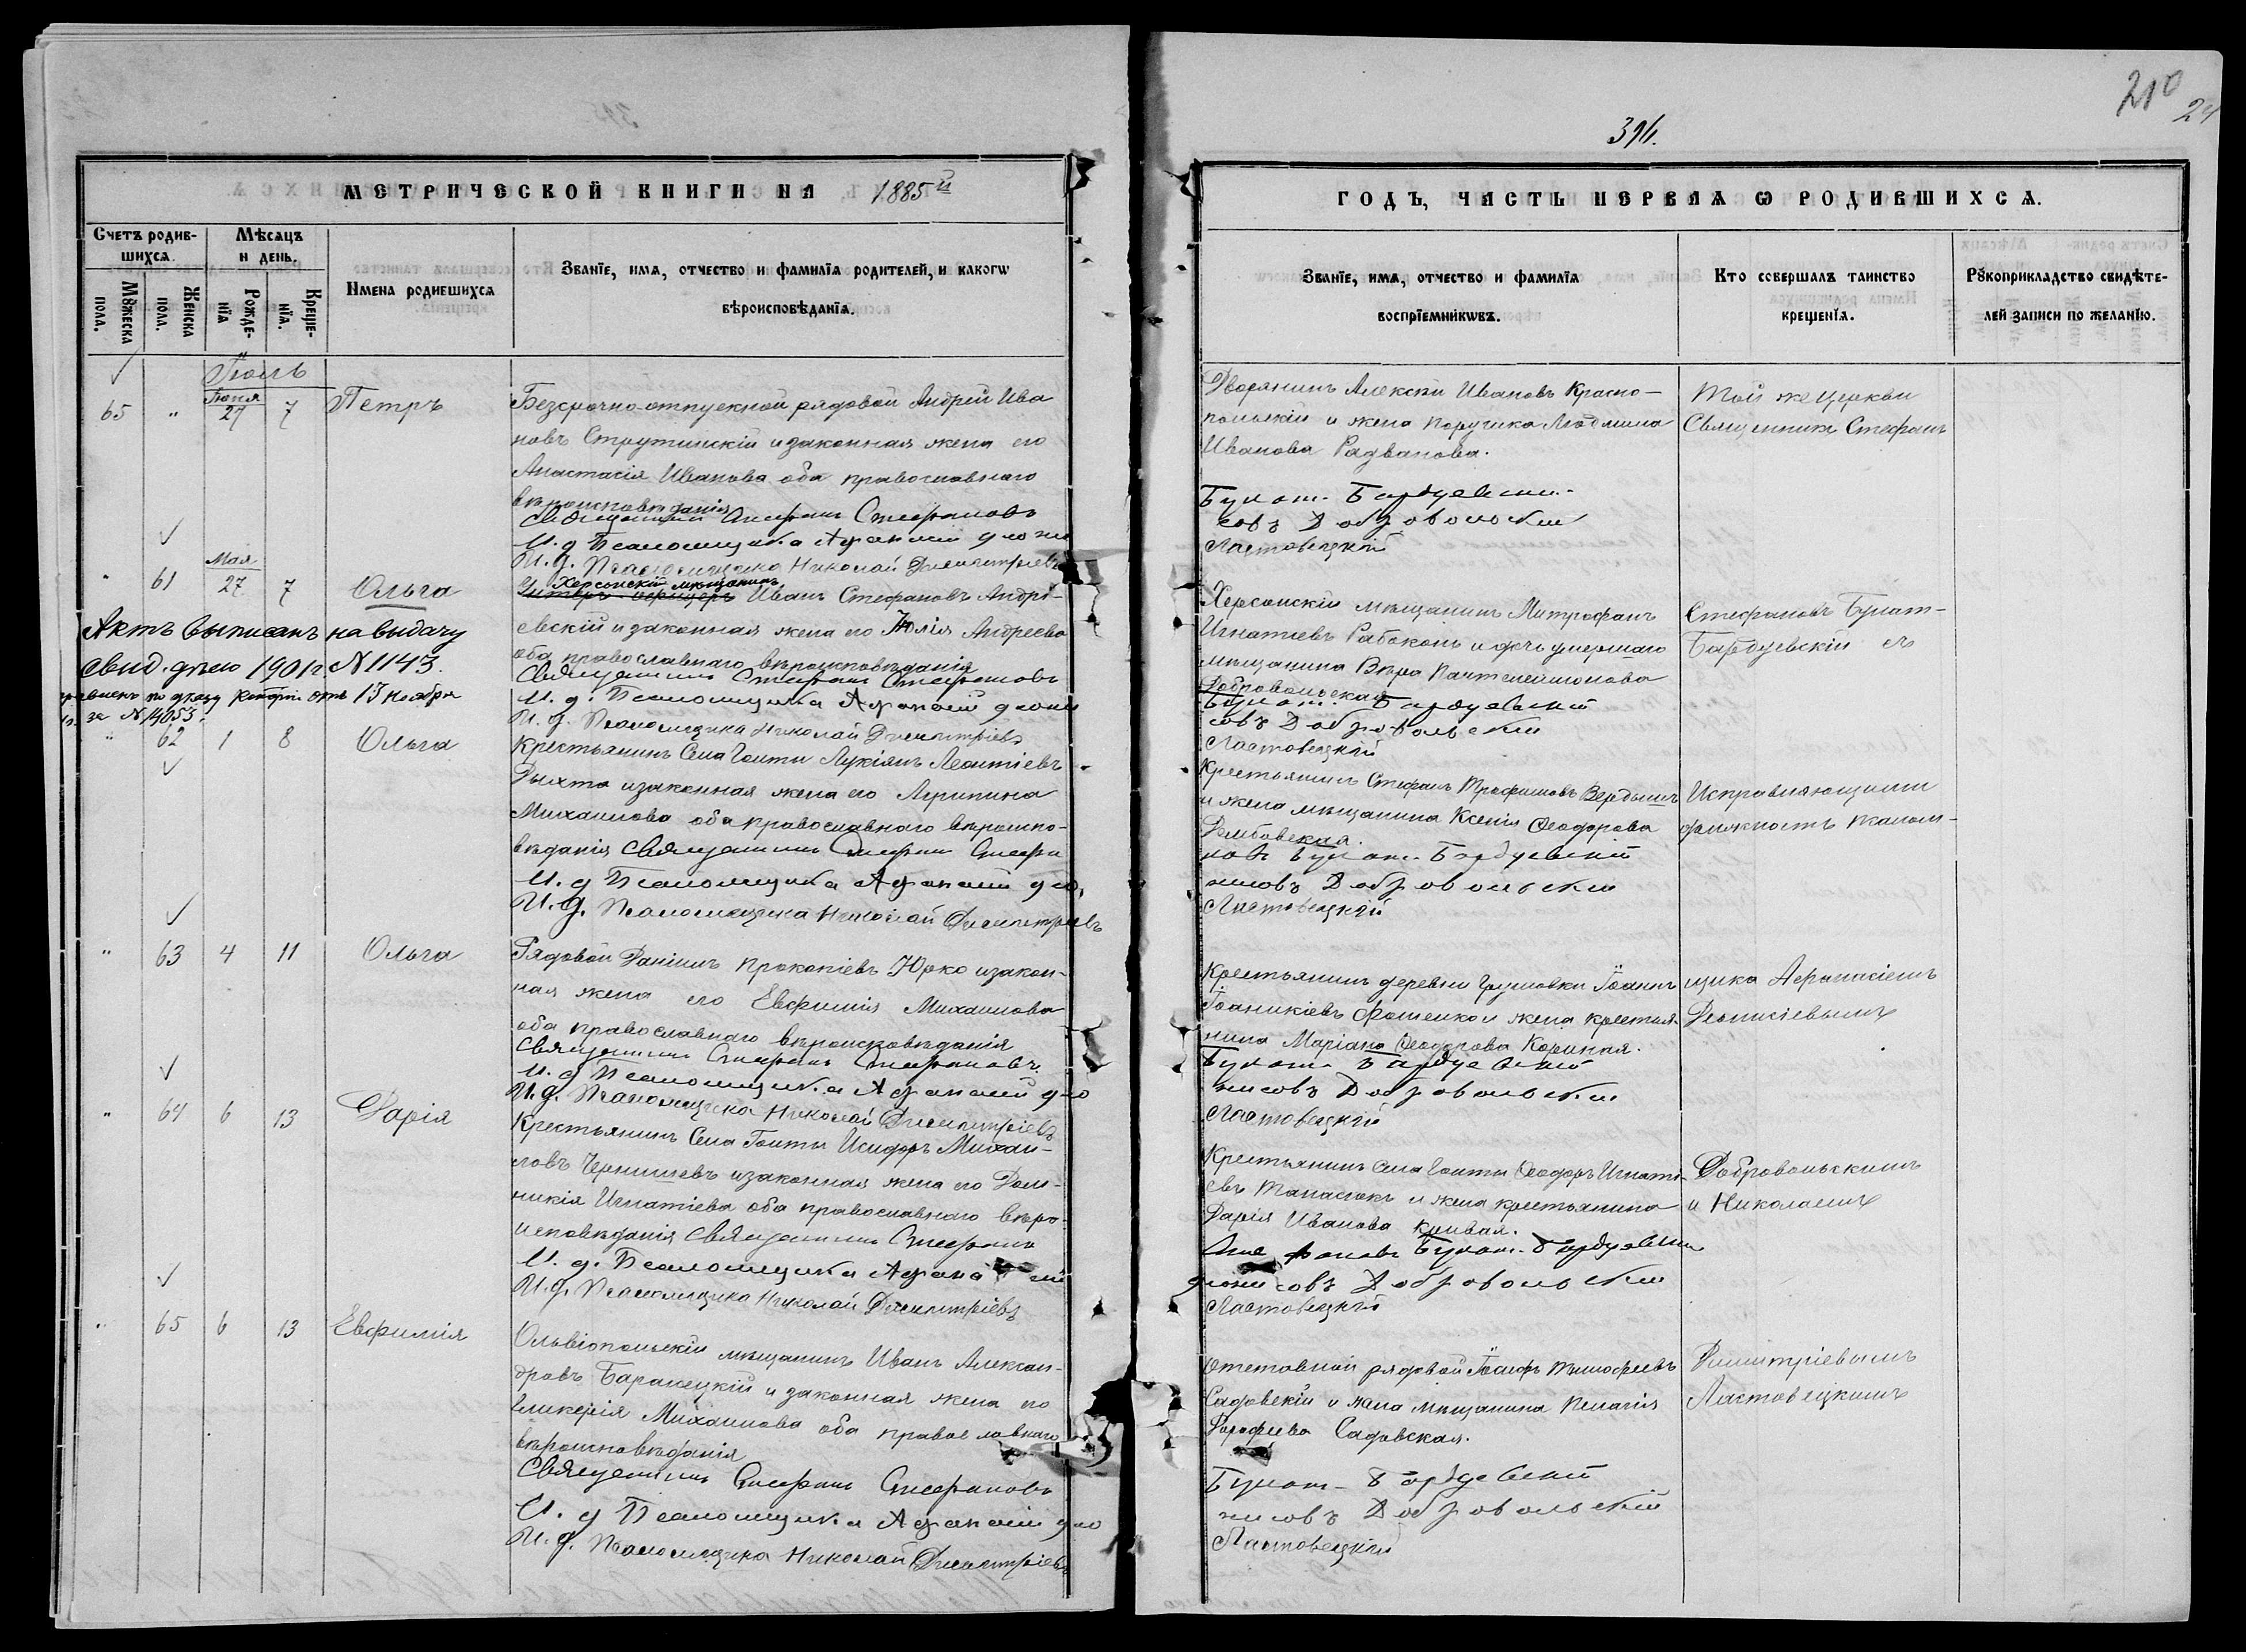 210
24
394.
МЕТРИЧЕСКОЙ КНИГИ НА 1885й
ГОДЪ, ЧАСТЬ ПЕРВАЯ Ѡ РОДИВШИХСѦ.
Счетъ родив-
шихсѧ.
Мѣсѧцъ
и день.
Мꙋжеска
пола.
Женска
пола.
Рожде-
нїѧ
Креще-
нїѧ.
Имена родившихсѧ
Званїе, имѧ, отчество и фамилїѧ родителей, и какогѡ
вѣроисповѣданїѧ.
Званїе, имѧ, отчество и фамилїѧ
воспрїемникѡвъ.
Кто совершалъ таинство
крещенїѧ.
Рꙋкоприкладство свидѣте-
лей записи по желанїю.
Іюль
65 " Іюня 27 7 Петръ
Безсрочно-отпускной рядовой Андрей Ива
новъ Струтинскій и законная жена его
Анастасія Иванова оба православнаго
вѣроисповѣданія
Священникъ Стефанъ Стефановъ
И. д. Псаломщика Афанасій Діони
И. д. Псаломщика Николай Димитріевъ
Дворянинъ Алексѣй Ивановъ Красно-
польскій и жена поручика Людмила
Иванова Радванова.
Булат-Бардуевскій
совъ Добровольскій
Ластовецкій
Той же церкви
Священникъ Стефанъ
" 61 Мая 27 7 Ольга
Херсонскій мѣщанинъ
Унтеръ офицеръ Иванъ Стефановъ Андрі-
евскій и законная жена его Юлія Андреева
оба православнаго вѣроисповѣданія
Священникъ Стефанъ Стефановъ
И. д. Псаломщика Афанасій Діони
И. д. Псаломщика Николай Димитріевъ
Актъ выписанъ на выдачу
свид. дѣло 1901 г. № 1143.
по указу Конст. отъ 13 Ноября
за № 14053.
Херсонскій мѣщанинъ Митрофанъ
Игнатіевъ Рабоконь и дочь умершаго
мѣщанина Вѣра Пантелеимонова
Добровольская
Булат-Бардуевскій
совъ Добровольскій
Ластовецкій
Стефановъ Булат-
Бардуевскій съ
" 62 1 8 Ольга
Крестьянинъ Села Голты Лукіянъ Леонтіевъ
Рыхта и законная жена его Агрипина
Михаилова оба православнаго вѣроиспо-
вѣданія Священникъ Стефанъ Стефа
И. д. Псаломщика Афанасій Діо
И. д. Псаломщика Николай Димитріевъ
Крестьянинъ Стефанъ Трофимовъ Вербышъ
и жена мѣщанина Ксенія Ѳеодорова
Дембовская.
новъ Булат-Бардуевскій
нисовъ Добровольскій
Ластовецкій
Исправляющимъ
должность псалом-
" 63 4 11 Ольга
Рядовой Даніилъ Прокопіевъ Юрко и закон-
ная жена его Евфимія Михаилова
оба православнаго вѣроисповѣданія
Священникъ Стефанъ Стефановъ
И. д. Псаломщика Афанасій Діо
И. д. Псаломщика Николай Димитріевъ
Крестьянинъ деревни Грушовки Іоаннъ
Іоаникіевъ Фоменко и жена крестья-
нина Маріана Ѳеодорова Кориная.
Булат-Бардуевскій
нисовъ Добровольскій
Ластовецкій
щика Афанасіемъ
Діонисіевымъ
" 64 6 13 Дарія
Крестьянинъ Села Голты Исидоръ Михаи-
ловъ Чернышевъ и законная жена его Дом-
никія Игнатіева оба православнаго вѣро-
исповѣданія Священникъ Стефанъ
И. д. Псаломщика Афанасій
И. д. Псаломщика Николай Димитріевъ
Крестьянинъ Села Голты Ѳеодоръ Игнаті-
евъ Танасюкъ и жена крестьянина
Дарія Иванова Кривая.
Стефановъ Булат-Бардуевскій
Діонисовъ Добровольскій
Ластовецкій
Добровольскимъ
и Николаемъ
" 65 6 13 Евфимія
Ольвіопольскій мѣщанинъ Иванъ Алексан-
дровъ Баранецкій и законная жена его
Гликерія Михаилова оба православнаго
вѣроисповѣданія
Священникъ Стефанъ Стефановъ
И. д. Псаломщика Афанасій Діо
И. д. Псаломщика Николай Димитріевъ
Отставной рядовой Іосифъ Тимофеевъ
Садовскій и жена мѣщанина Пелагія
Дорофеева Садовская.
Булат-Бардуевскій
нисовъ Добровольскій
Ластовецкій
Димитріевымъ
Ластовецкимъ